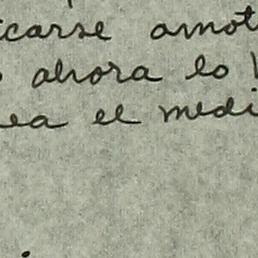 icarse amot
ahora lo
ea el medi